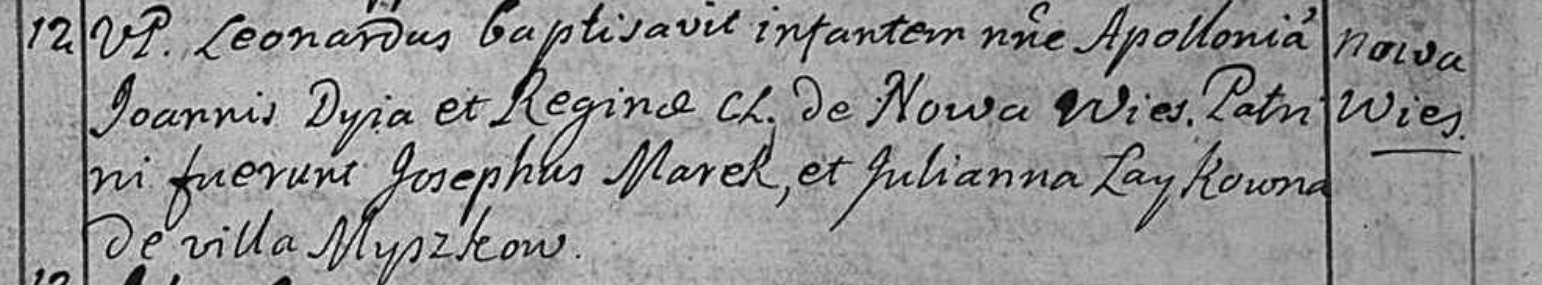 12 VP. Leonardus baptisavit infantem nne Apollonia Nowa
Joannis Dyja et Reginæ CL. de Nowa Wies. Patri Wies.
ni fuerunt Josephus Marek, et Julianna Zaykowna
de villa Myszkow.